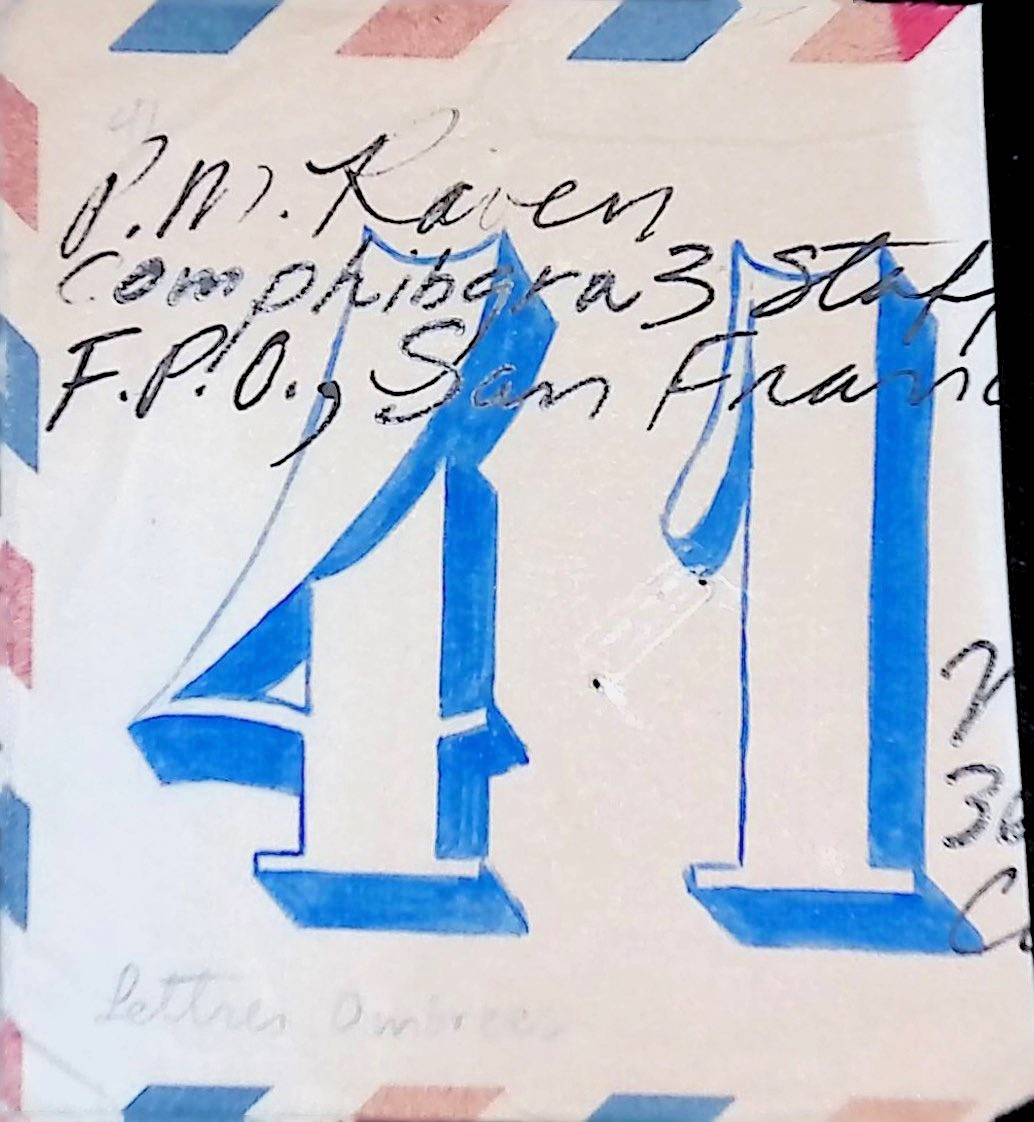 41
P.M. Raven
Comphibgra 3 Staf
F.P.O., San Franc
41
3
C
Lettres Ombrees